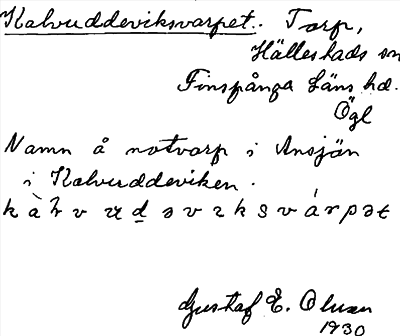 Kalvuddeviksvarpet. Torp,
Hällestads sn
Finspånga Läns hd.
Ögl
Namn å notvarp i Ansjön
i Kalvuddeviken.
Gustaf E. Olsson
1930